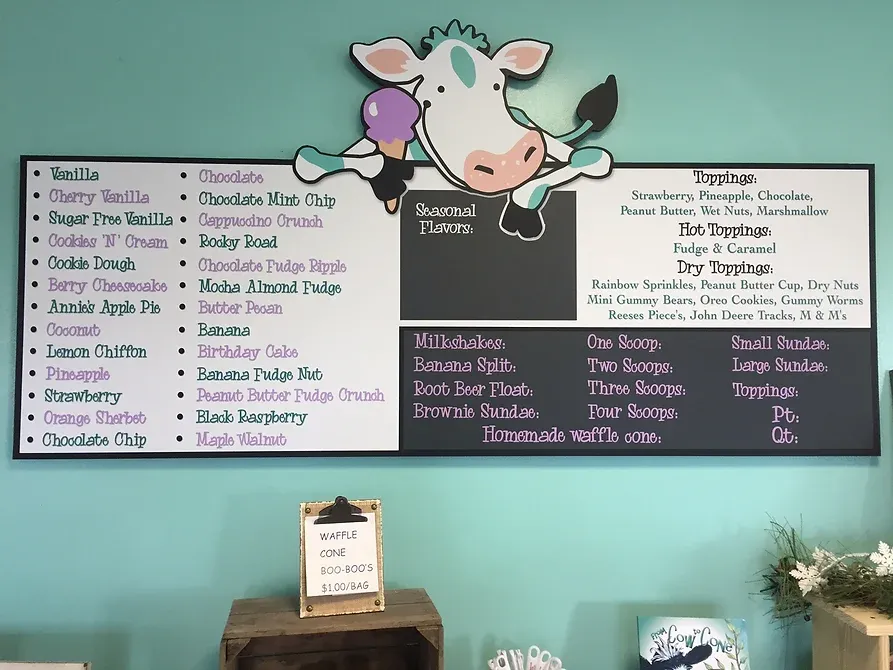 Vanilla
Cherry Vanilla
Sugar Free Vanilla
Cookies 'N' Cream
Cookie Dough
Berry Cheesecake
Annie's Apple Pie
Coconut
Lemon Chiffon
Pineapple
Strawberry
Orange Sherbet
Chocolate Chip
Chocolate
Chocolate Mint Chip
Cappuccino Crunch
Rocky Road
Chocolate Fudge Ripple
Mocha Almond Fudge
Butter Pecan
Banana
Birthday Cake
Banana Fudge Nut
Peanut Butter Fudge Crunch
Black Raspberry
Maple Walnut
Seasonal
Flavors:
Toppings:
Strawberry, Pineapple, Chocolate,
Peanut Butter, Wet Nuts, Marshmallow
Hot Toppings:
Fudge & Caramel
Dry Toppings:
Rainbow Sprinkles, Peanut Butter Cup, Dry Nuts
Mini Gummy Bears, Oreo Cookies, Gummy Worms
Reeses Piece's, John Deere Tracks, M & M's
Milkshakes:
Banana Split:
Root Beer Float:
Brownie Sundae:
One Scoop:
Two Scoops:
Three Scoops:
Four Scoops:
Small Sundae:
Large Sundae:
Toppings:
Pt:
Qt:
Homemade waffle cone:
WAFFLE
CONE
BOO-BOO'S
$1.00/BAG
FROM COW to CONE